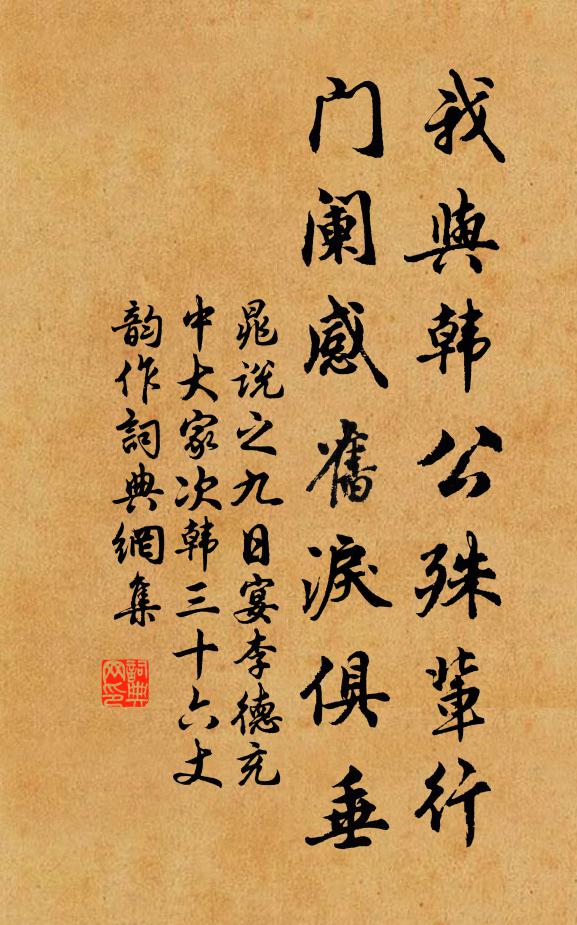 我與韩公殊輩行
门阑感舊淚俱垂
晁说之九日宴李德充
中大家次韩三十六丈
韵作詞典網集
詞典
网印